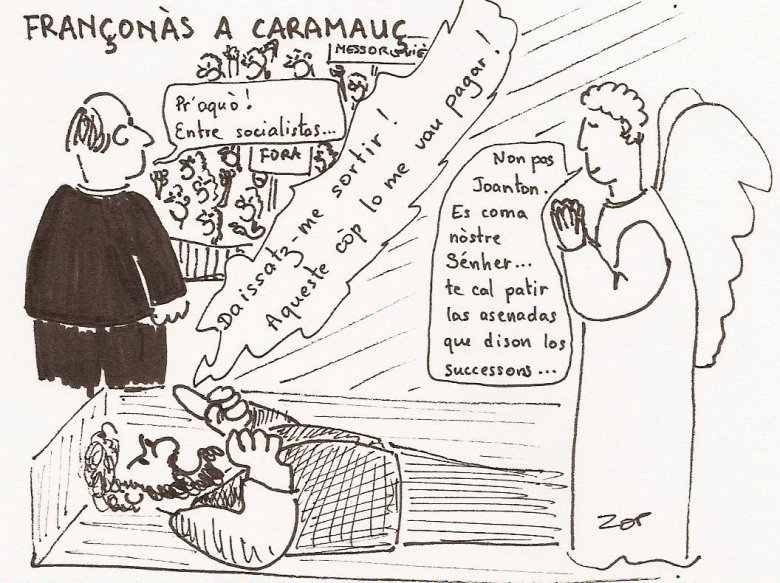 FRANÇONÀS A CARAMAUÇ
Pr'aquò!
Entre socialistas...
FORA
Daissatz-me sortir!
Aqueste còp lo me vau pagar!
Non pas
Joanton.
Es coma
nòstre
Sénher...
te cal patir
las asenadas
que dison los
successors...
Zor